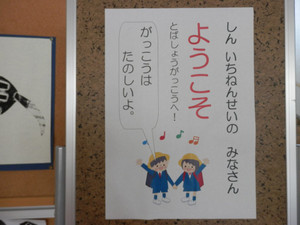 しん いちねんせいの みなさん
ようこそ
とばしょうがっこうへ！
がっこうは
たのしいよ。